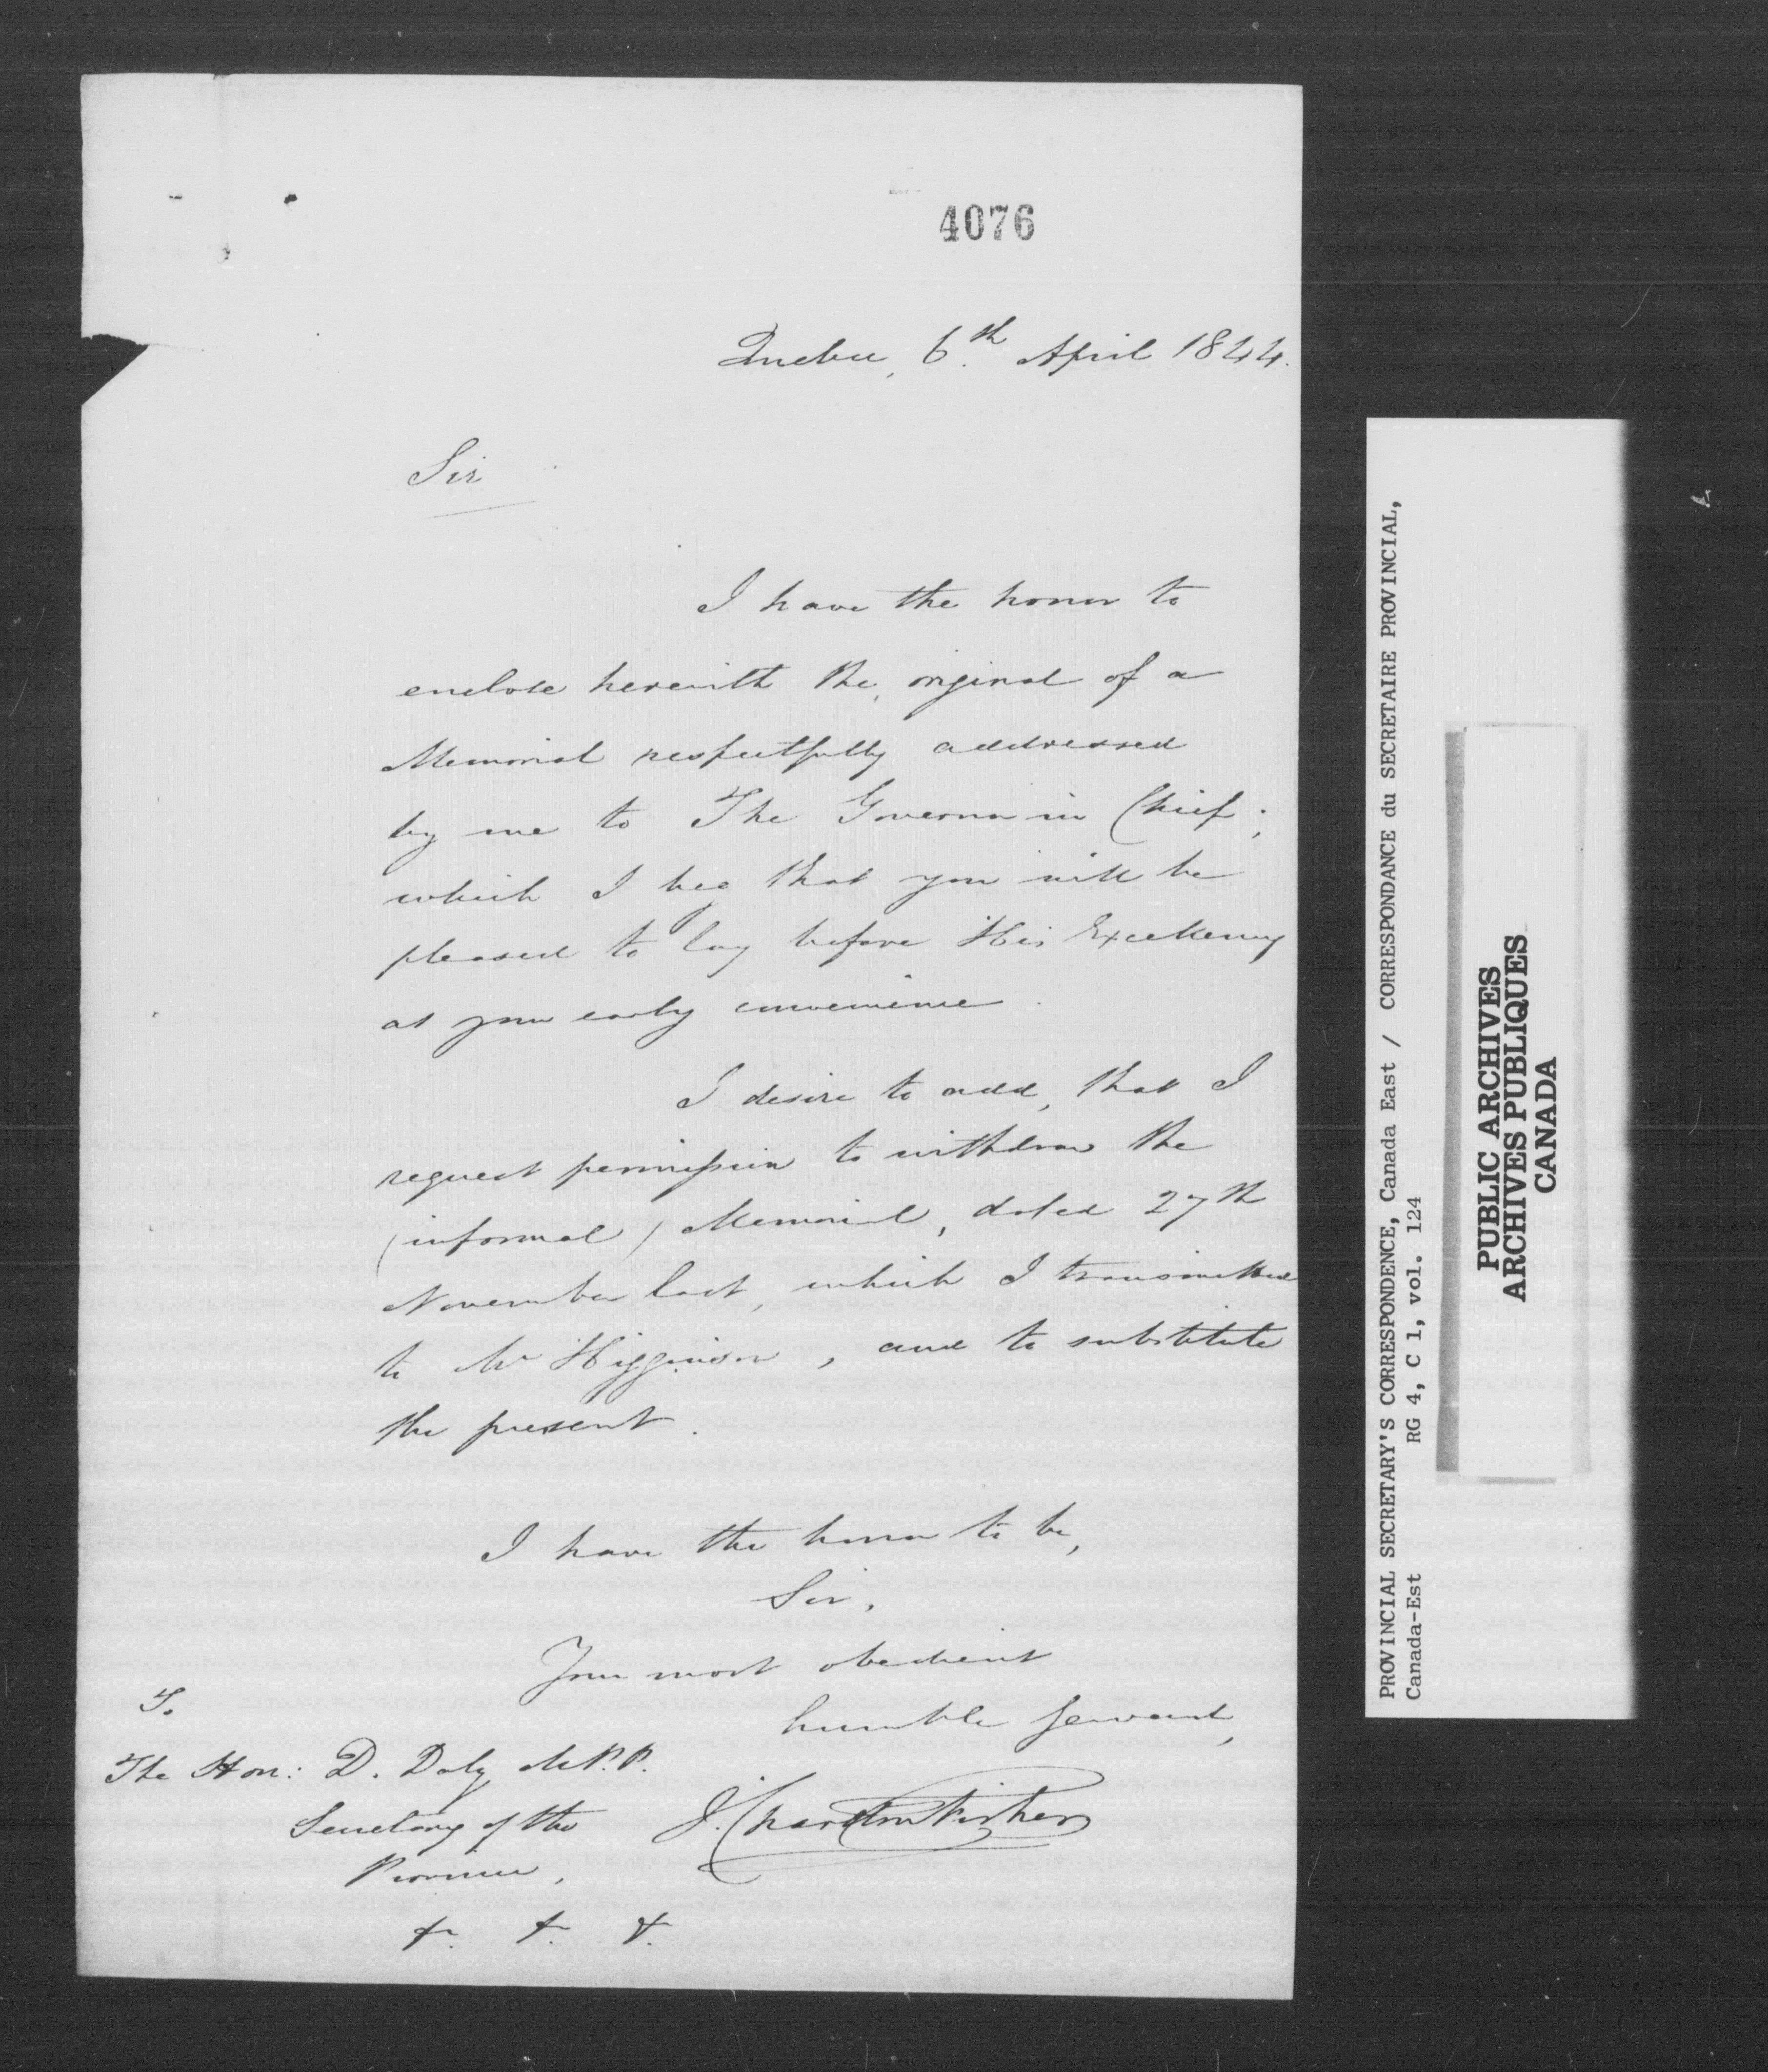 4076
Quebec, 6.th April 1844.
Sir
I have the honor to
enclose herewith the, original of a
Memorial respectfully addressed
by me to The Governor in Chief;
which I beg that you will be
pleased to lay before His Excellency
at your early convenience.
I desire to add, that I
request permission to withdraw the
(informal) Memorial, dated 27th
November last, which I transmitted
to Mr Higginson, and to substitute
the present.
I have the honor to be,
Sir,
Your most obedient
humble servant,
J. Charlton Fisher
To
The Hon: D. Daly M.P.P.
Secretary of the
Province,
&. &. &.
PROVINCIAL SECRETARY'S CORRESPONDENCE, Canada East / CORRESPONDANCE du SECRETAIRE PROVINCIAL,
Canada-Est RG 4, C 1, vol. 124
PUBLIC ARCHIVES
ARCHIVES PUBLIQUES
CANADA